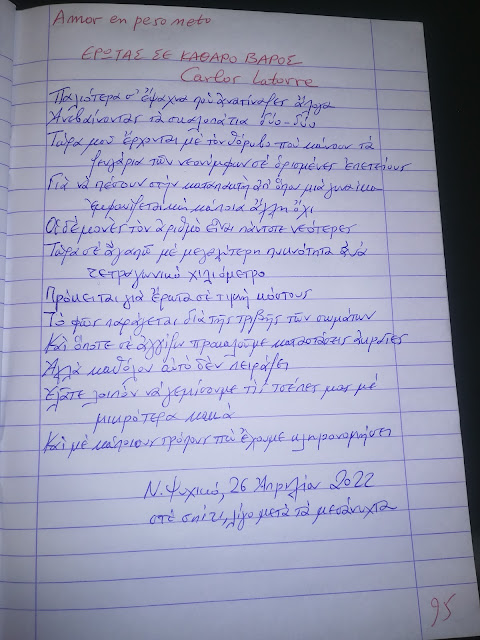 Amor en peso neto
ΕΡΩΤΑΣ ΣΕ ΚΑΘΑΡΟ ΒΑΡΟΣ
Carlos Latorre
Παλιότερα σ' ἔψαχνα ποὺ ἄλογα
Ἀνεβαίνοντας τὰ σκαλοπάτια δύο-δύο
Τώρα μοῦ ἔρχονται μὲ τὸν θόρυβο ποὺ κάνουν τὰ
τῶν νεονύμφων σὲ ὁρισμένες ἐπετείους
Γιὰ νὰ πέσουν στὴν καταπακτὴ ἀπ' ὅπου μιὰ γυναίκα
ἐμφανίζεται καὶ κάποια ἄλλη ὄχι
Οἱ δαίμονες τὸν ἀριθμὸ εἶναι πάντοτε νεότερες
Τώρα σὲ ἀγαπῶ μὲ μεγαλύτερη πυκνότητα ἀνὰ
τετραγωνικὸ χιλιόμετρο
Πρόκειται γιὰ ἔρωτα σὲ τιμὴ κόστους
Τὸ φῶς παράγεται διὰ τῆς τριβῆς τῶν σωμάτων
Καὶ ὅποτε σὲ ἀγγίζω προκαλοῦμε καταστάσεις ἀκραῖες
Ἀλλὰ καθόλου αὐτὸ δὲν πειράζει
Ἐλᾶτε λοιπὸν νὰ γεμίσουμε τὶς τσέπες μας μὲ
μικρότερα κακὰ
Καὶ μὲ κάποιους τρόπους ποὺ ἔχουμε κληρονομήσει
Ν. Ψυχικό, 26 Ἀπριλίου 2022
στὸ σπίτι, λίγο μετὰ τὰ μεσάνυχτα
95